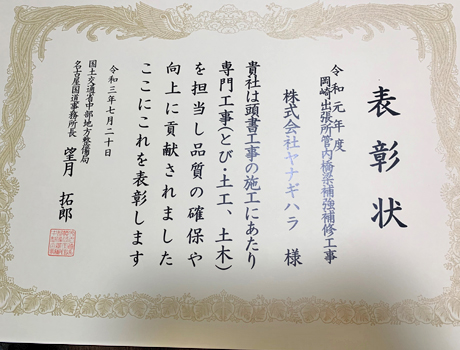 表彰状
令和元年度
岡崎出張所管内橋梁補強補修工事
株式会社ヤナギハラ 様
貴社は頭書工事の施工にあたり
専門工事(とび・土工、土木)
を担当し品質の確保や
向上に貢献されました
ここにこれを表彰します
令和三年七月二十日
国土交通省中部地方整備局
名古屋国道事務所長 望月 拓郎